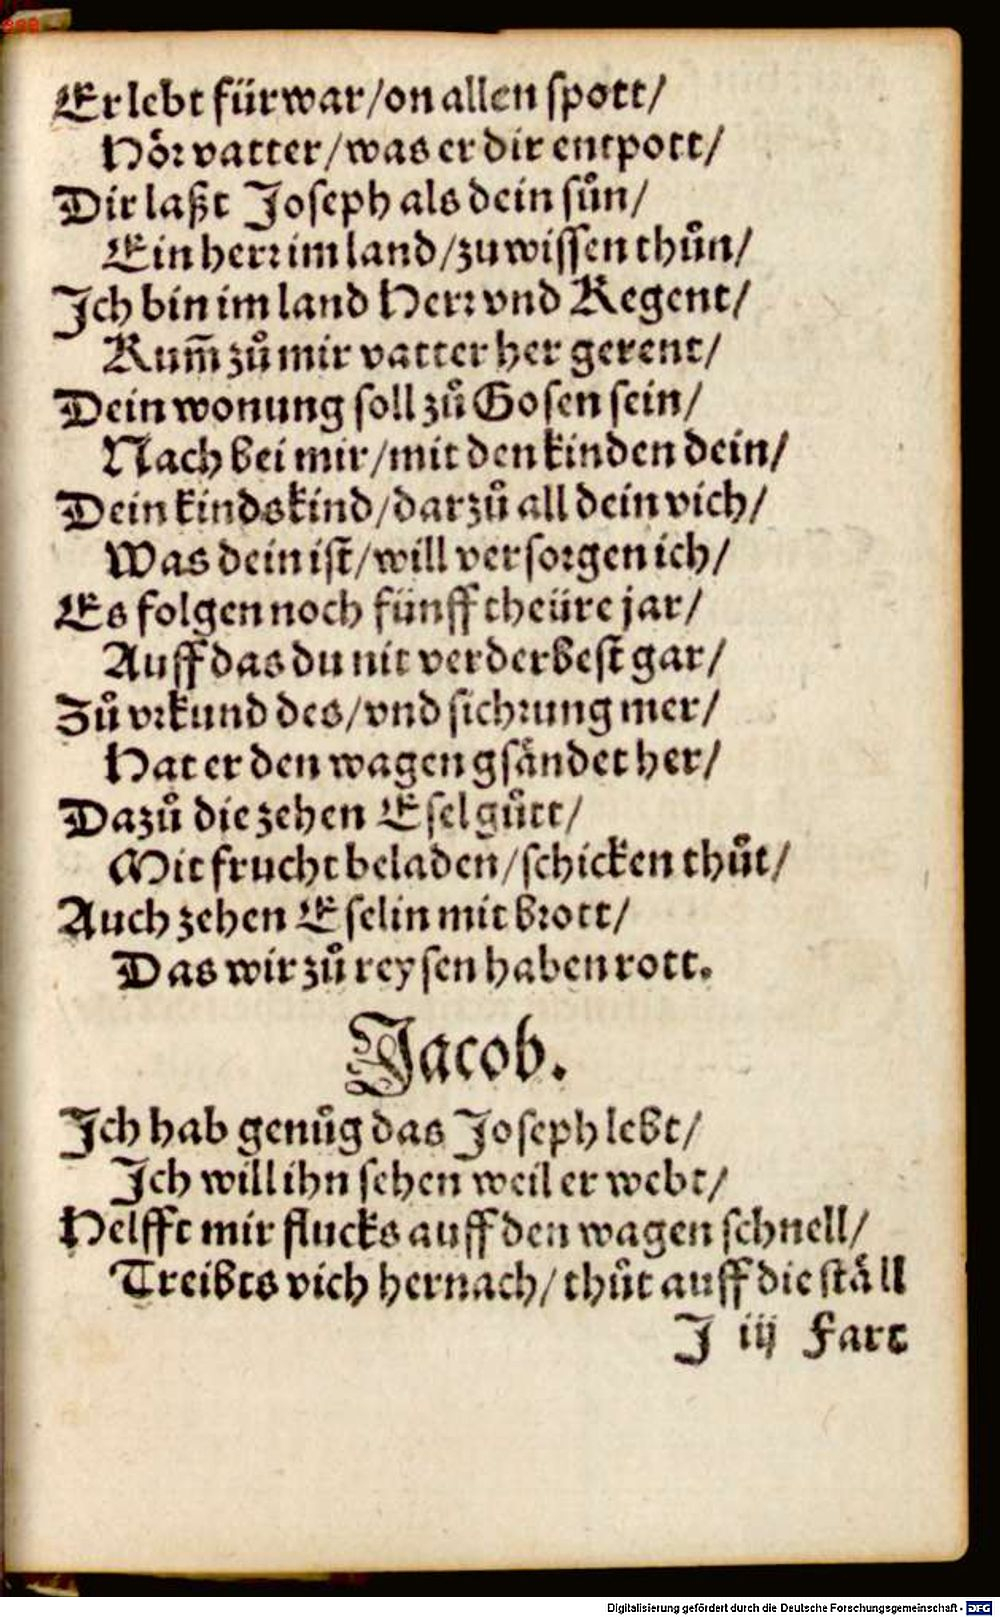 Er lebt fürwar/on allen spott/
Hör vatter/was er dir entpott/
Dir laßt Joseph als dein sůn/
Ein herr im land/zu wissen thůn/
Ich bin im land Herr vnd Regent/
Kum̃ zů mir vatter her gerent/
Dein wonung soll zů Gosen sein/
Nach bei mir/mit den kinden dein/
Dein kindskind/darzů all dein vich/
Was dein ist/will versorgen ich/
Es folgen noch fünff theüre jar/
Auff das du nit verderbest gar/
Zů vrkund des/vnd sichrung mer/
Hat er den wagen gsändet her/
Dazů die zehen Esel gůtt/
Mit frucht beladen/schicken thůt/
Auch zehen Eselin mit brott/
Das wir zů reysen haben rott.
Jacob.
Ich hab genůg das Joseph lebt/
Ich will ihn sehen weil er webt/
Helfft mir flucks auff den wagen schnell/
Treibts vich hernach/thůt auff die ställ
J iij Fart
Digitalisierung gefördert durch die Deutsche Forschungsgemeinschaft - DFG